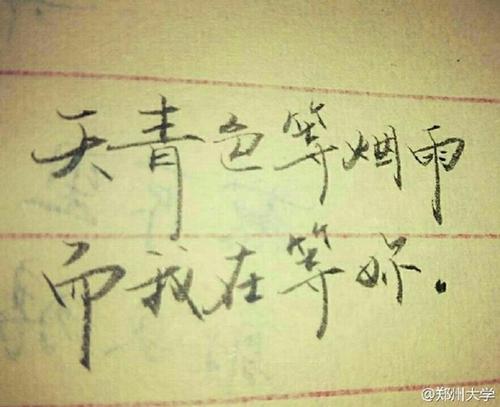 天青色等烟雨
而我在等妳.
@郑州大学